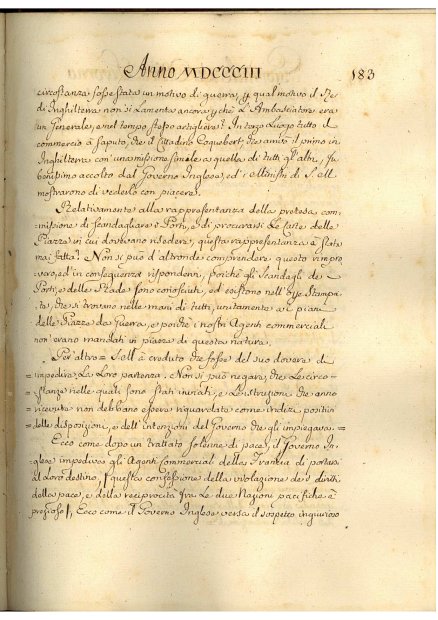 Anno MDCCCIII 183
circostanza fosse stata un motivo di guerra, p qual motivo il Re
di Inghilterra non si lamenta ancora, p chè L'Ambasciatore era
un Generale, e nel tempo stesso artigliere? In terzo Luogo tutto il
commercio à saputo, che il Cittadino Coquebert, che arrivò il primo in
Inghilterra con una missione simile a quella di tutti gl'altri, fu
benissimo accolto dal Governo Inglese, ed i Ministri di S. M.
mostrarono di vederlo con piacere.
Relativamente alla rappresentanza della pretesa com:
missione di scandagliare i Porti, e di procurarsi Le Carte delle
Piazze in cui dovevano risedere, questa rappresentanza è stata
mai fatta? Non si può d'altronde comprendere questo rimpro
vero, ed in conseguenza rispondervi, poichè gli Scandagli de'
Porti, e delle Rade sono conosciuti, ed esistono nell'opre Stampa:
te, che si trovano nelle mani di tutti, unitamente ai piani
delle Piazze da Guerra, e poichè i nostri Agenti commerciali
non erano mandati in piazze di questa natura.
Per altro = S. M. à creduto che fosse del suo dovere d'
= impedire La Loro partenza. Non si può negare, che Le circo=
= stanze nelle quali sono stati inviati, e L'instruzioni che anno
= ricevuto non debbano essere riguardate come indizi positivi
= delle disposizioni, e dell'intenzioni del Governo che gli impiegava. =
Ecco come dopo un trattato solenne di pace, il Governo In:
glese impediva gli Agenti Commerciali della Francia di portarsi
al Loro destino, (questa confessione della violazione de' diritti
della pace, e della reciprocità fra Le due Nazioni pacifiche è
preziosa), Ecco come il Governo Inglese versa il sospetto ingiurioso